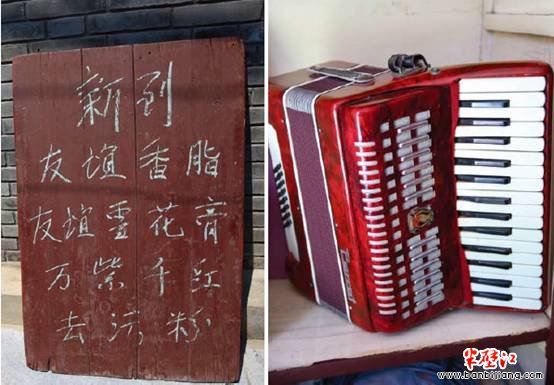 新到
友谊香脂
友谊雪花膏
万紫千红
去污粉
半壁江
www.banbijiang.com